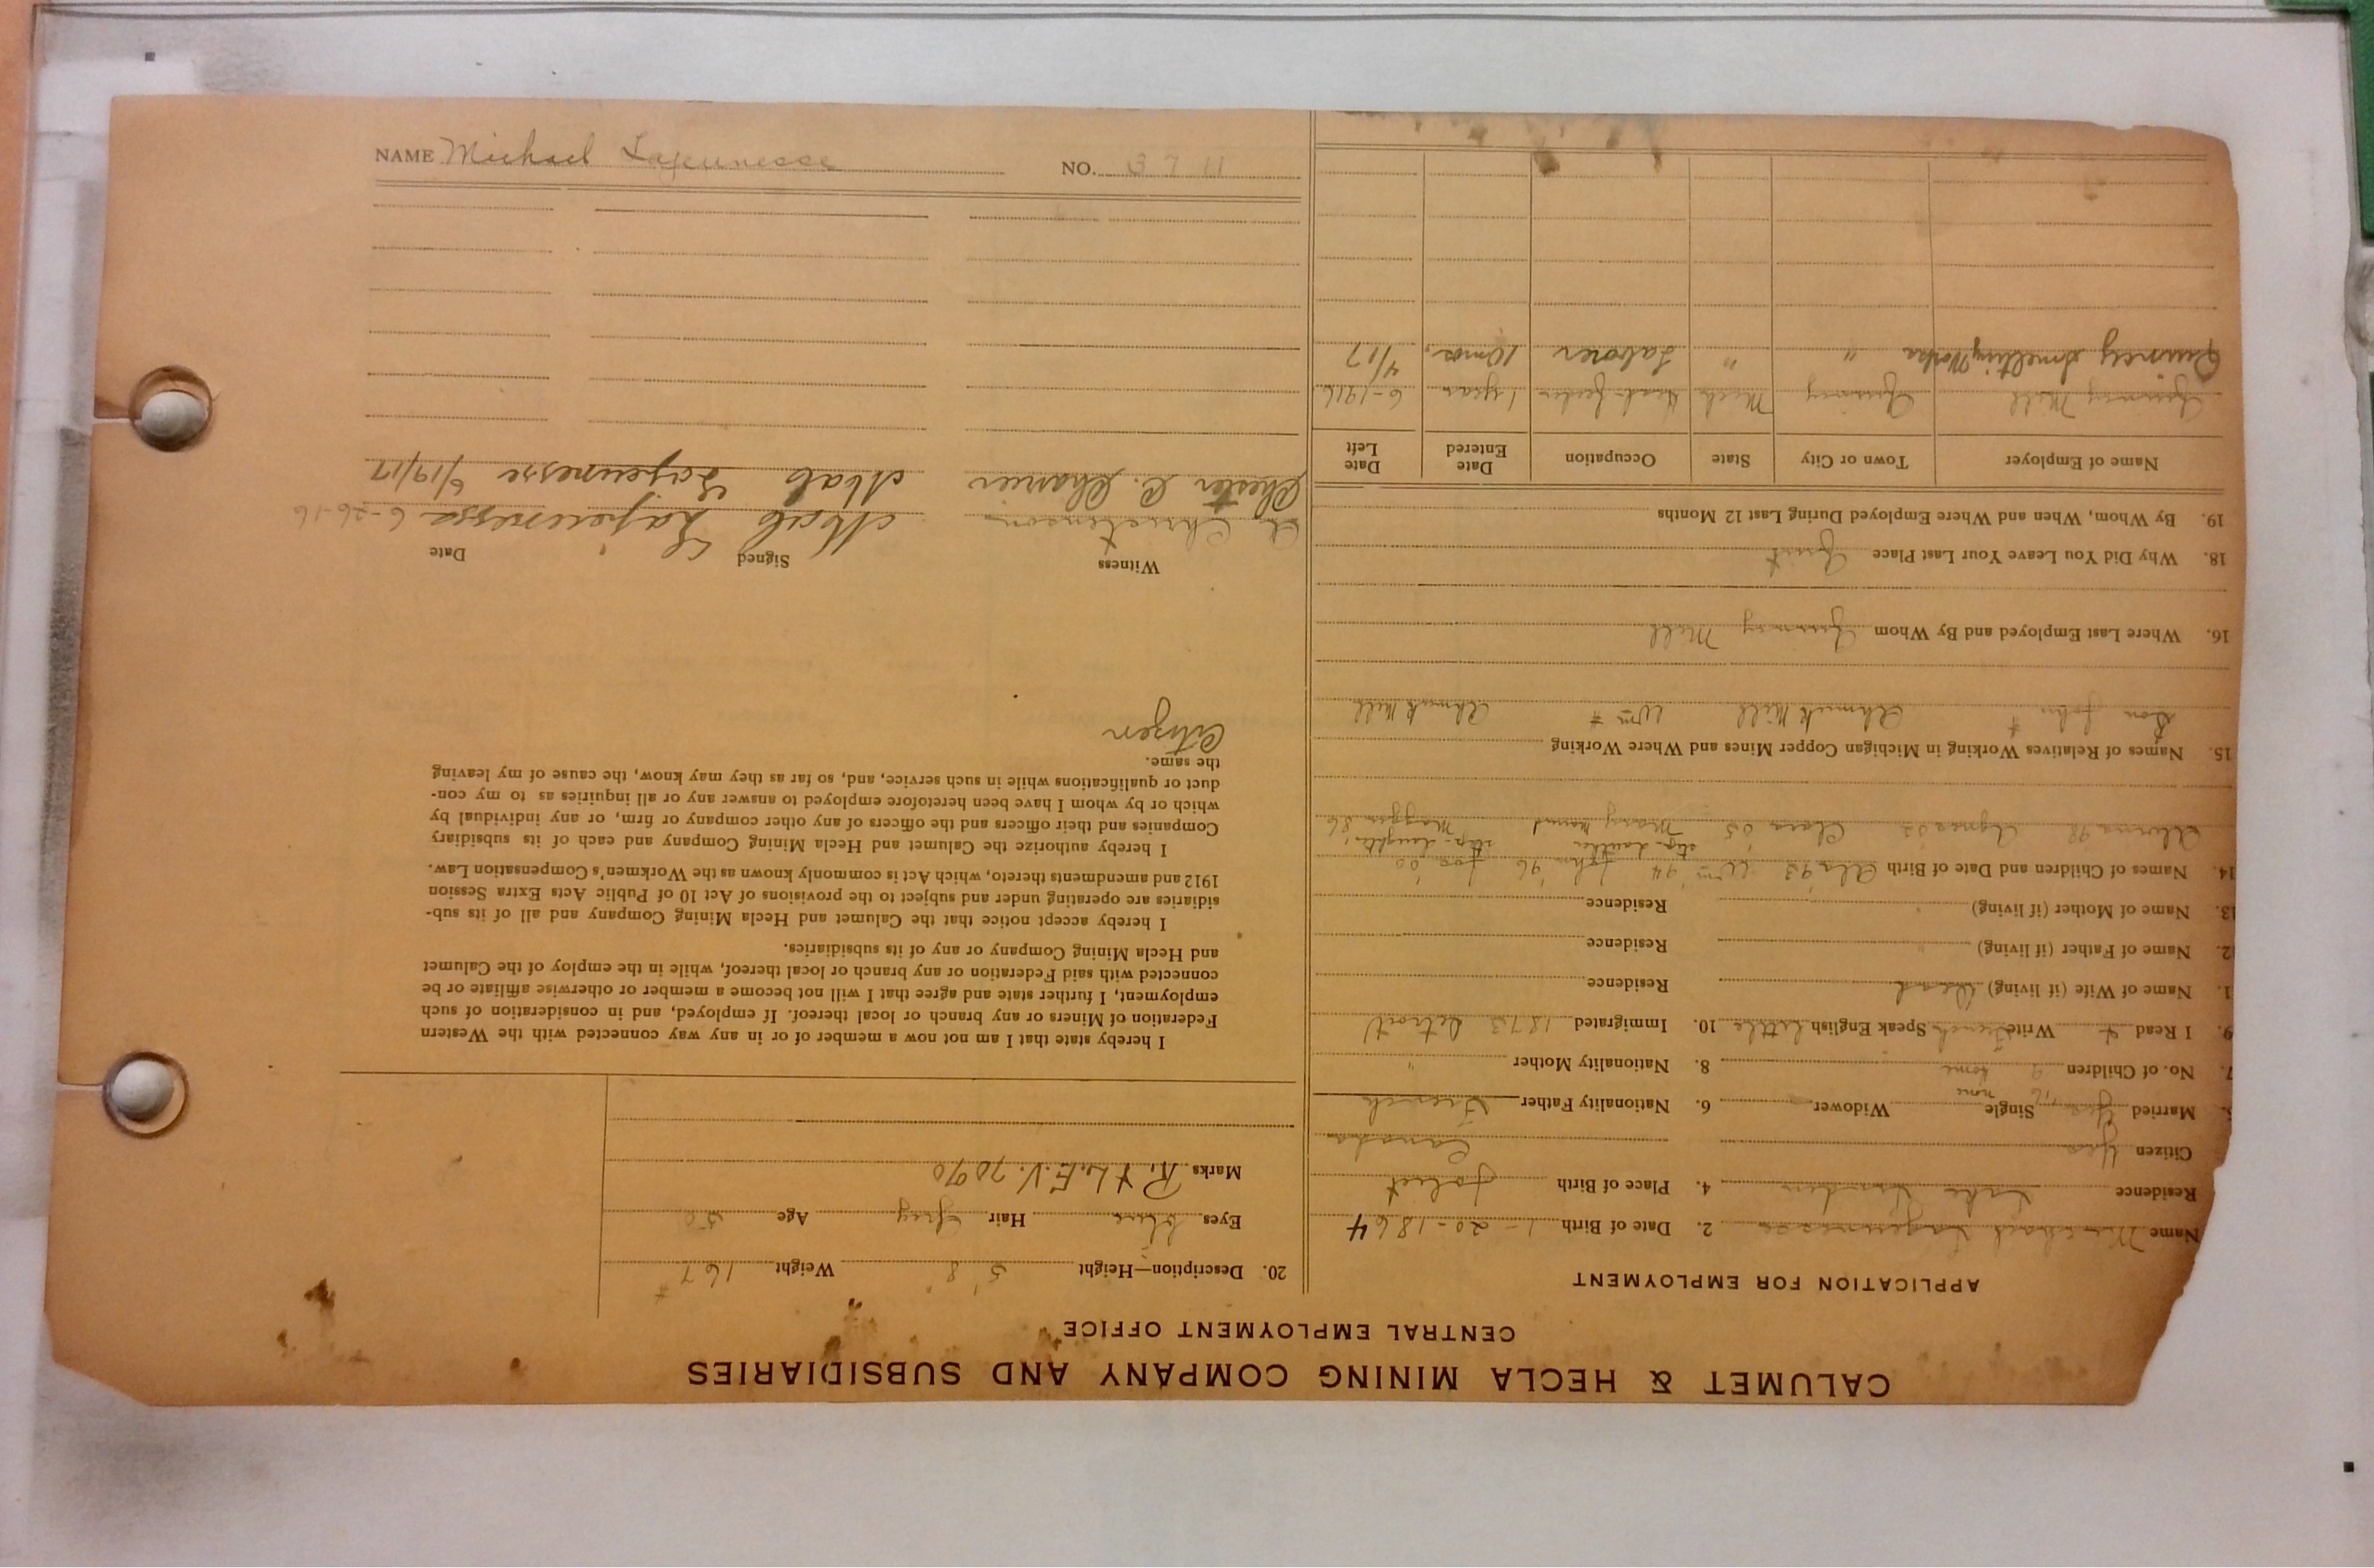 CALUMET & HECLA MINING COMPANY AND SUBSIDIARIES
CENTRAL EMPLOYMENT OFFICE
APPLICATION FOR EMPLOYMENT
Name Michael Lajeunesse 2. Date of Birth 1-20-1864
Residence Lake Linden 4. Place of Birth Joliet
Citizen Yes Canada
Married Yes Single Widower 6. Nationality Father French
7. No. of Children 9 8. Nationality Mother "
9. I Read & Write French Speak English little 10. Immigrated 1873 Detroit
1. Name of Wife (if living) Dead Residence
2. Name of Father (if living) Residence
13. Name of Mother (if living) Residence
14. Names of Children and Date of Birth '93 Wm '94 John '96 Joe '00
98 Agnes 02 Clara '05 Mary Maggie 86
15. Names of Relatives Working in Michigan Copper Mines and Where Working
Son John # Ahmeek Mill Wm # Ahmeek Mill
16. Where Last Employed and By Whom Quincy Mill
18. Why Did You Leave Your Last Place Quit
19. By Whom, When and Where Employed During Last 12 Months
Name of Employer Town or City State Occupation Date Entered Date Left
Quincy Mill Quincy Mich Head-feeder 1 year 6-1916
Quincy Smelting Works " " Laborer 10 mos. 4/17
20. Description—Height 5' 8" Weight 167 #
Eyes Blue Hair Grey Age 50
Marks R. & L. E. V. 70 90
I hereby state that I am not now a member of or in any way connected with the Western
Federation of Miners or any branch or local thereof. If employed, and in consideration of such
employment, I further state and agree that I will not become a member or otherwise affiliate or be
connected with said Federation or any branch or local thereof, while in the employ of the Calumet
and Hecla Mining Company or any of its subsidiaries.
I hereby accept notice that the Calumet and Hecla Mining Company and all of its sub-
sidiaries are operating under and subject to the provisions of Act 10 of Public Acts Extra Session
1912 and amendments thereto, which Act is commonly known as the Workmen's Compensation Law.
I hereby authorize the Calumet and Hecla Mining Company and each of its subsidiary
Companies and their officers and the officers of any other company or firm, or any individual by
which or by whom I have been heretofore employed to answer any or all inquiries as to my con-
duct or qualifications while in such service, and, so far as they may know, the cause of my leaving
the same.
Citizen
Witness Signed Date
Christenson Lajeunesse 6-26-16
Chester C. Lajeunesse 6/19/17
NAME Michael Lajeunesse NO. 3711